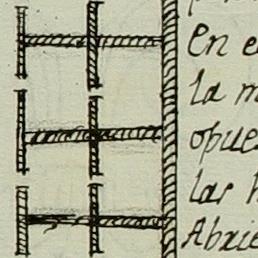 En e
la m
opue
las h
Abrie